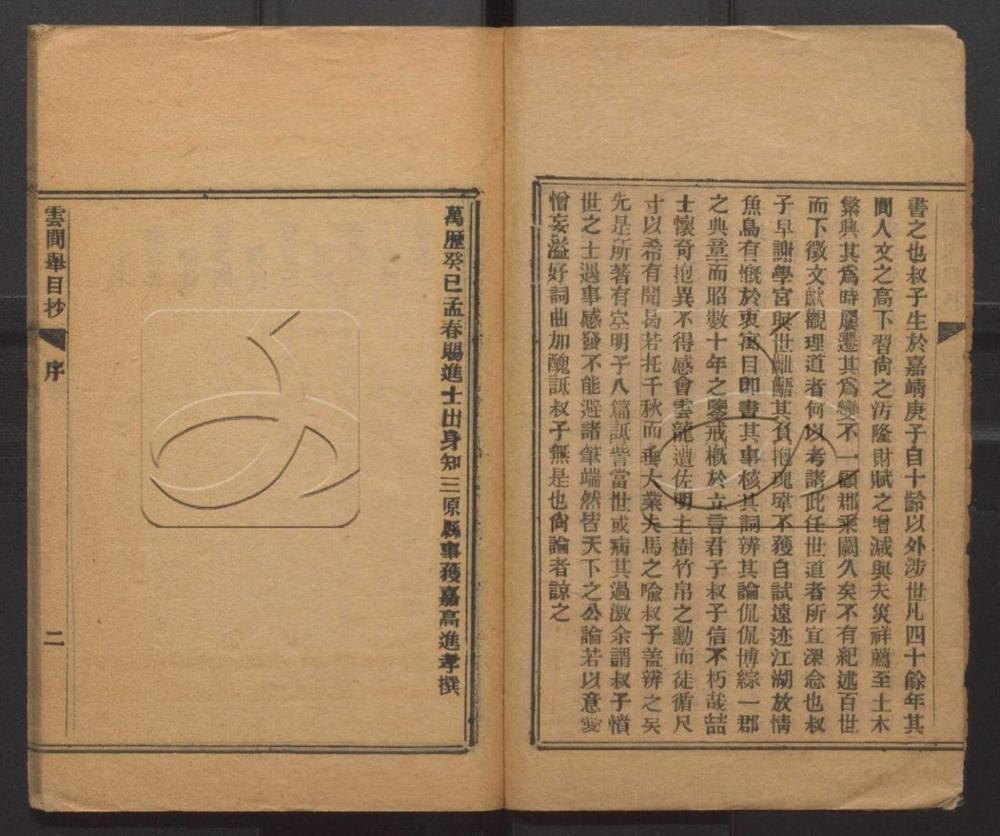 書之也叔子生於嘉靖庚子自十齡以外涉世凡四十餘年其
間人文之高下習尙之汚隆財賦之增減與夫災祥薦至土木
繁興其爲時屢遷其爲變不一顧郡乘闕久矣不有紀述百世
而下徵文獻觀理道者何以考諸此任世道者所宜深念也叔
子早謝學宮與世齟齬其負抱瑰瑋不獲自試遠迹江湖放情
魚鳥有慨於衷寓目卽書其事核其詞辨其論侃侃博綜一郡
之典章而昭數十年之鑒戒槪於立言君子叔子信不朽哉喆
士懷奇抱異不得感會雲龍遭佐明主樹竹帛之勳而徒循尺
寸以希有聞曷若托千秋而垂大業犬馬之喩叔子蓋辨之矣
先是所著有空明子八篇詆訾當世或病其過激余謂叔子憤
世之士遇事感發不能避諸筆端然皆天下之公論若以意愛
憎妄溢好詞曲加醜詆叔子無是也尙論者諒之
萬歷癸巳孟春賜進士出身知三原縣事獲嘉高進孝撰
雲間舉目抄 序 二